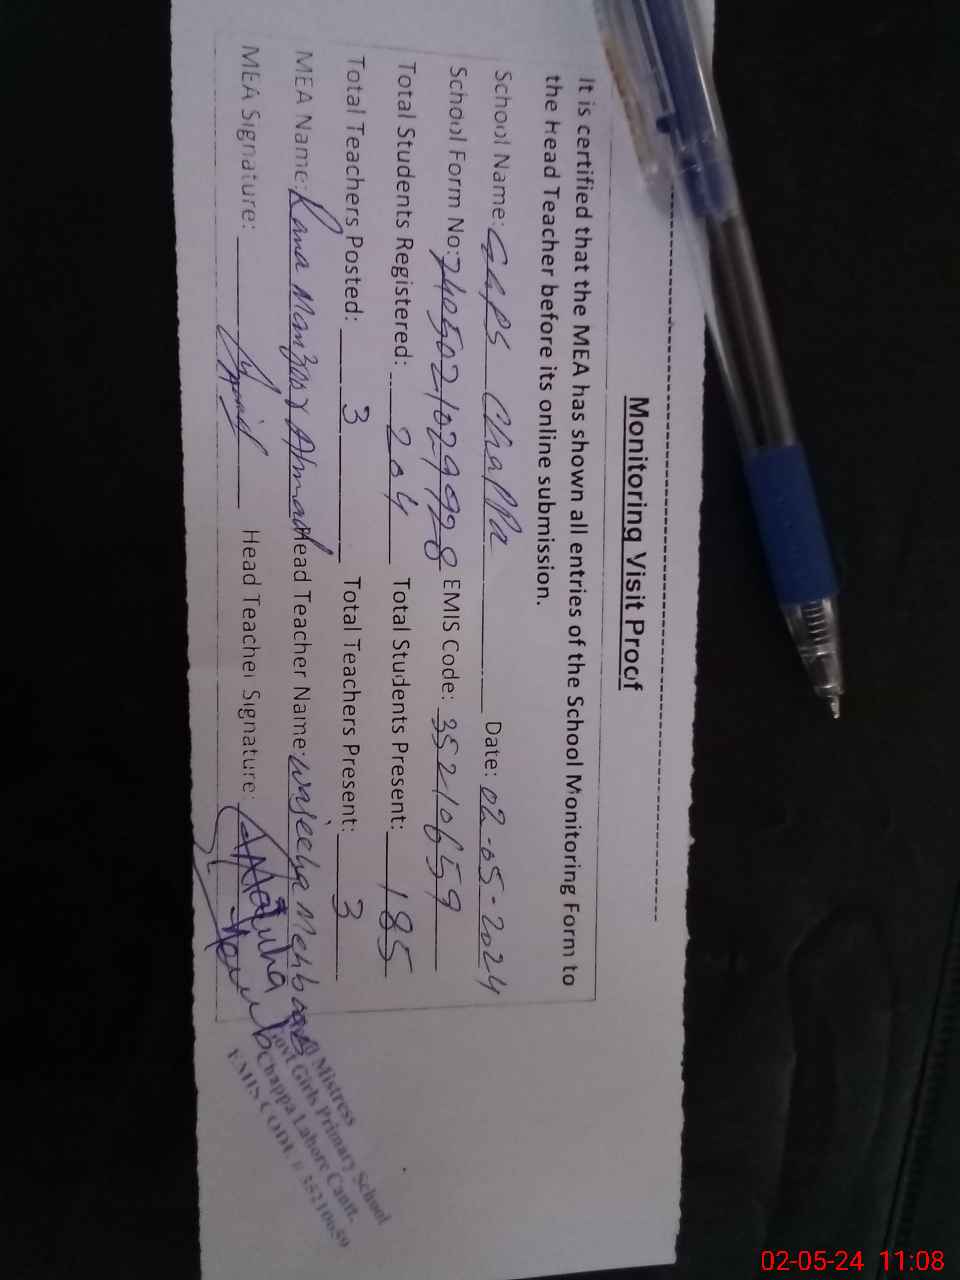 Monitoring Visit Proof
It is certified that the MEA has shown all entries of the School Monitoring Form to
the Head Teacher before its online submission.
School Name: GGPS Chappa Date: 02-05-2024
School Form No: 7405021029928 EMIS Code: 35210659
Total Students Registered: 204 Total Students Present: 185
Total Teachers Posted: 3 Total Teachers Present: 3
MEA Name: Rana Manzoor Ahmad Head Teacher Name: Waseeha
MEA Signature: Head Teacher Signature:
Mistress
Govt Girls Primary School
Chappa Lahore Cantt.
EMIS CODE # 35210659
02-05-24 11:08